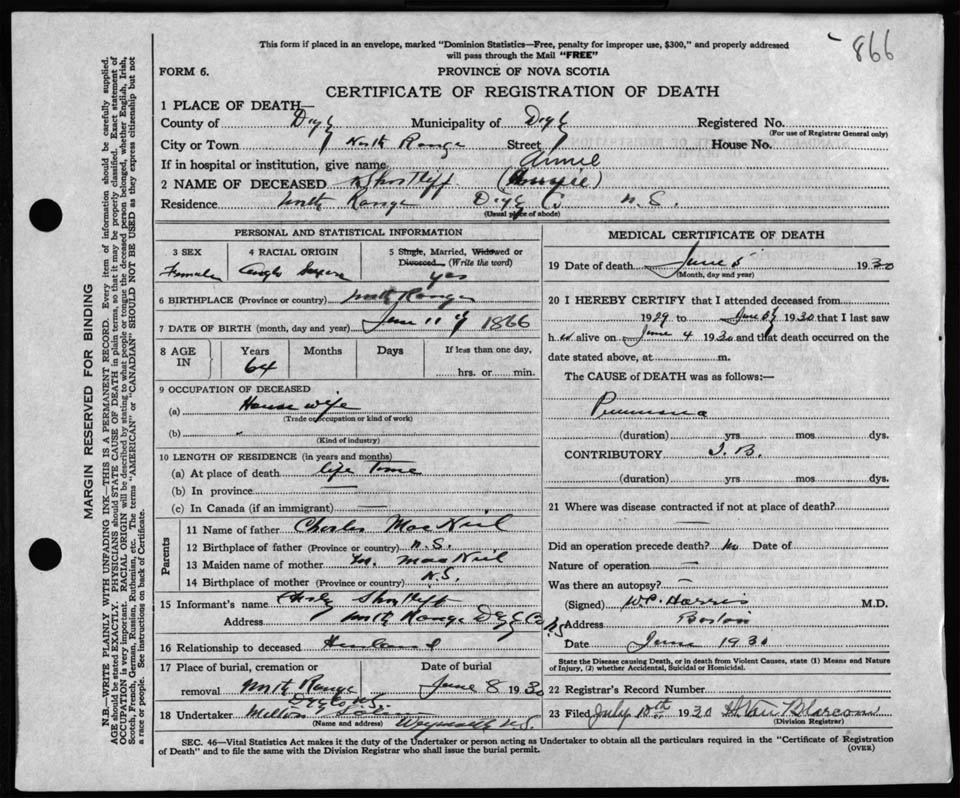 866
This form if placed in an envelope, marked "Dominion Statistics—Free, penalty for improper use, $300," and properly addressed
will pass through the Mail "FREE"
FORM 6.
PROVINCE OF NOVA SCOTIA
CERTIFICATE OF REGISTRATION OF DEATH
1 PLACE OF DEATH—
County of Digby Municipality of Digby Registered No.
(For use of Registrar General only)
City or Town North Range Street House No.
If in hospital or institution, give name Annie
2 NAME OF DECEASED Shortliff
Residence North Range Digby Co N.S.
(Usual place of abode)
PERSONAL AND STATISTICAL INFORMATION
3 SEX 4 RACIAL ORIGIN 5 Single, Married, Widowed or
Divorced (Write the word)
Female Anglo Saxon yes
6 BIRTHPLACE (Province or country) North Range
7 DATE OF BIRTH (month, day and year) June 11 1866
8 AGE IN Years Months Days If less than one day,
64 hrs. or min.
9 OCCUPATION OF DECEASED
(a) House wife
(Trade occupation or kind of work)
(b)
(Kind of industry)
10 LENGTH OF RESIDENCE (in years and months)
(a) At place of death life Time
(b) In province —
(c) In Canada (if an immigrant) —
Parents
11 Name of father Charles MacNeil
12 Birthplace of father (Province or country) N.S.
13 Maiden name of mother MacNeil
14 Birthplace of mother (Province or country) N.S.
15 Informant's name Shortliff
Address North Range Digby Co NS
16 Relationship to deceased Husband
17 Place of burial, cremation or Date of burial
removal North Range June 8 1930
Digby Co N.S.
18 Undertaker
(Name and address) Weymouth N.S.
MEDICAL CERTIFICATE OF DEATH
19 Date of death June 5 1930
(Month, day and year)
20 I HEREBY CERTIFY that I attended deceased from
1929 to June 5 1930 that I last saw
her alive on June 4 1930 and that death occurred on the
date stated above, at m.
The CAUSE of DEATH was as follows:—
Pneumonia
(duration) yrs mos dys.
CONTRIBUTORY T.B.
(duration) yrs mos dys.
21 Where was disease contracted if not at place of death?
—
Did an operation precede death? No Date of
Nature of operation —
Was there an autopsy? —
(Signed) Harris M.D.
Address
Date June 1930
State the Disease causing Death, or in death from Violent Causes, state (1) Means and Nature
of Injury, (2) whether Accidental, Suicidal or Homicidal.
22 Registrar's Record Number
23 Filed July 10th 1930 H. Van Blarcom
(Division Registrar)
SEC. 46—Vital Statistics Act makes it the duty of the Undertaker or person acting as Undertaker to obtain all the particulars required in the "Certificate of Registration
of Death" and to file the same with the Division Registrar who shall issue the burial permit.
(OVER)
MARGIN RESERVED FOR BINDING
N.B.—WRITE PLAINLY WITH UNFADING INK—THIS IS A PERMANENT RECORD. Every item of information should be carefully supplied.
AGE should be stated EXACTLY. PHYSICIANS should STATE CAUSE OF DEATH in plain terms, so that it may be properly classified. Exact statement of
OCCUPATION is very important. RACIAL ORIGIN will be described by stating to what people or tongue the deceased person belonged, whether English, Irish,
Scotch, French, German, Russian, Ruthenian, etc. The terms "AMERICAN" or "CANADIAN" SHOULD NOT BE USED as they express citizenship but not
a race or people. See instructions on back of Certificate.